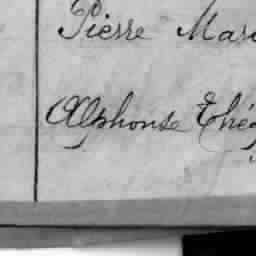 Pierre Mar
Alphonse Thé